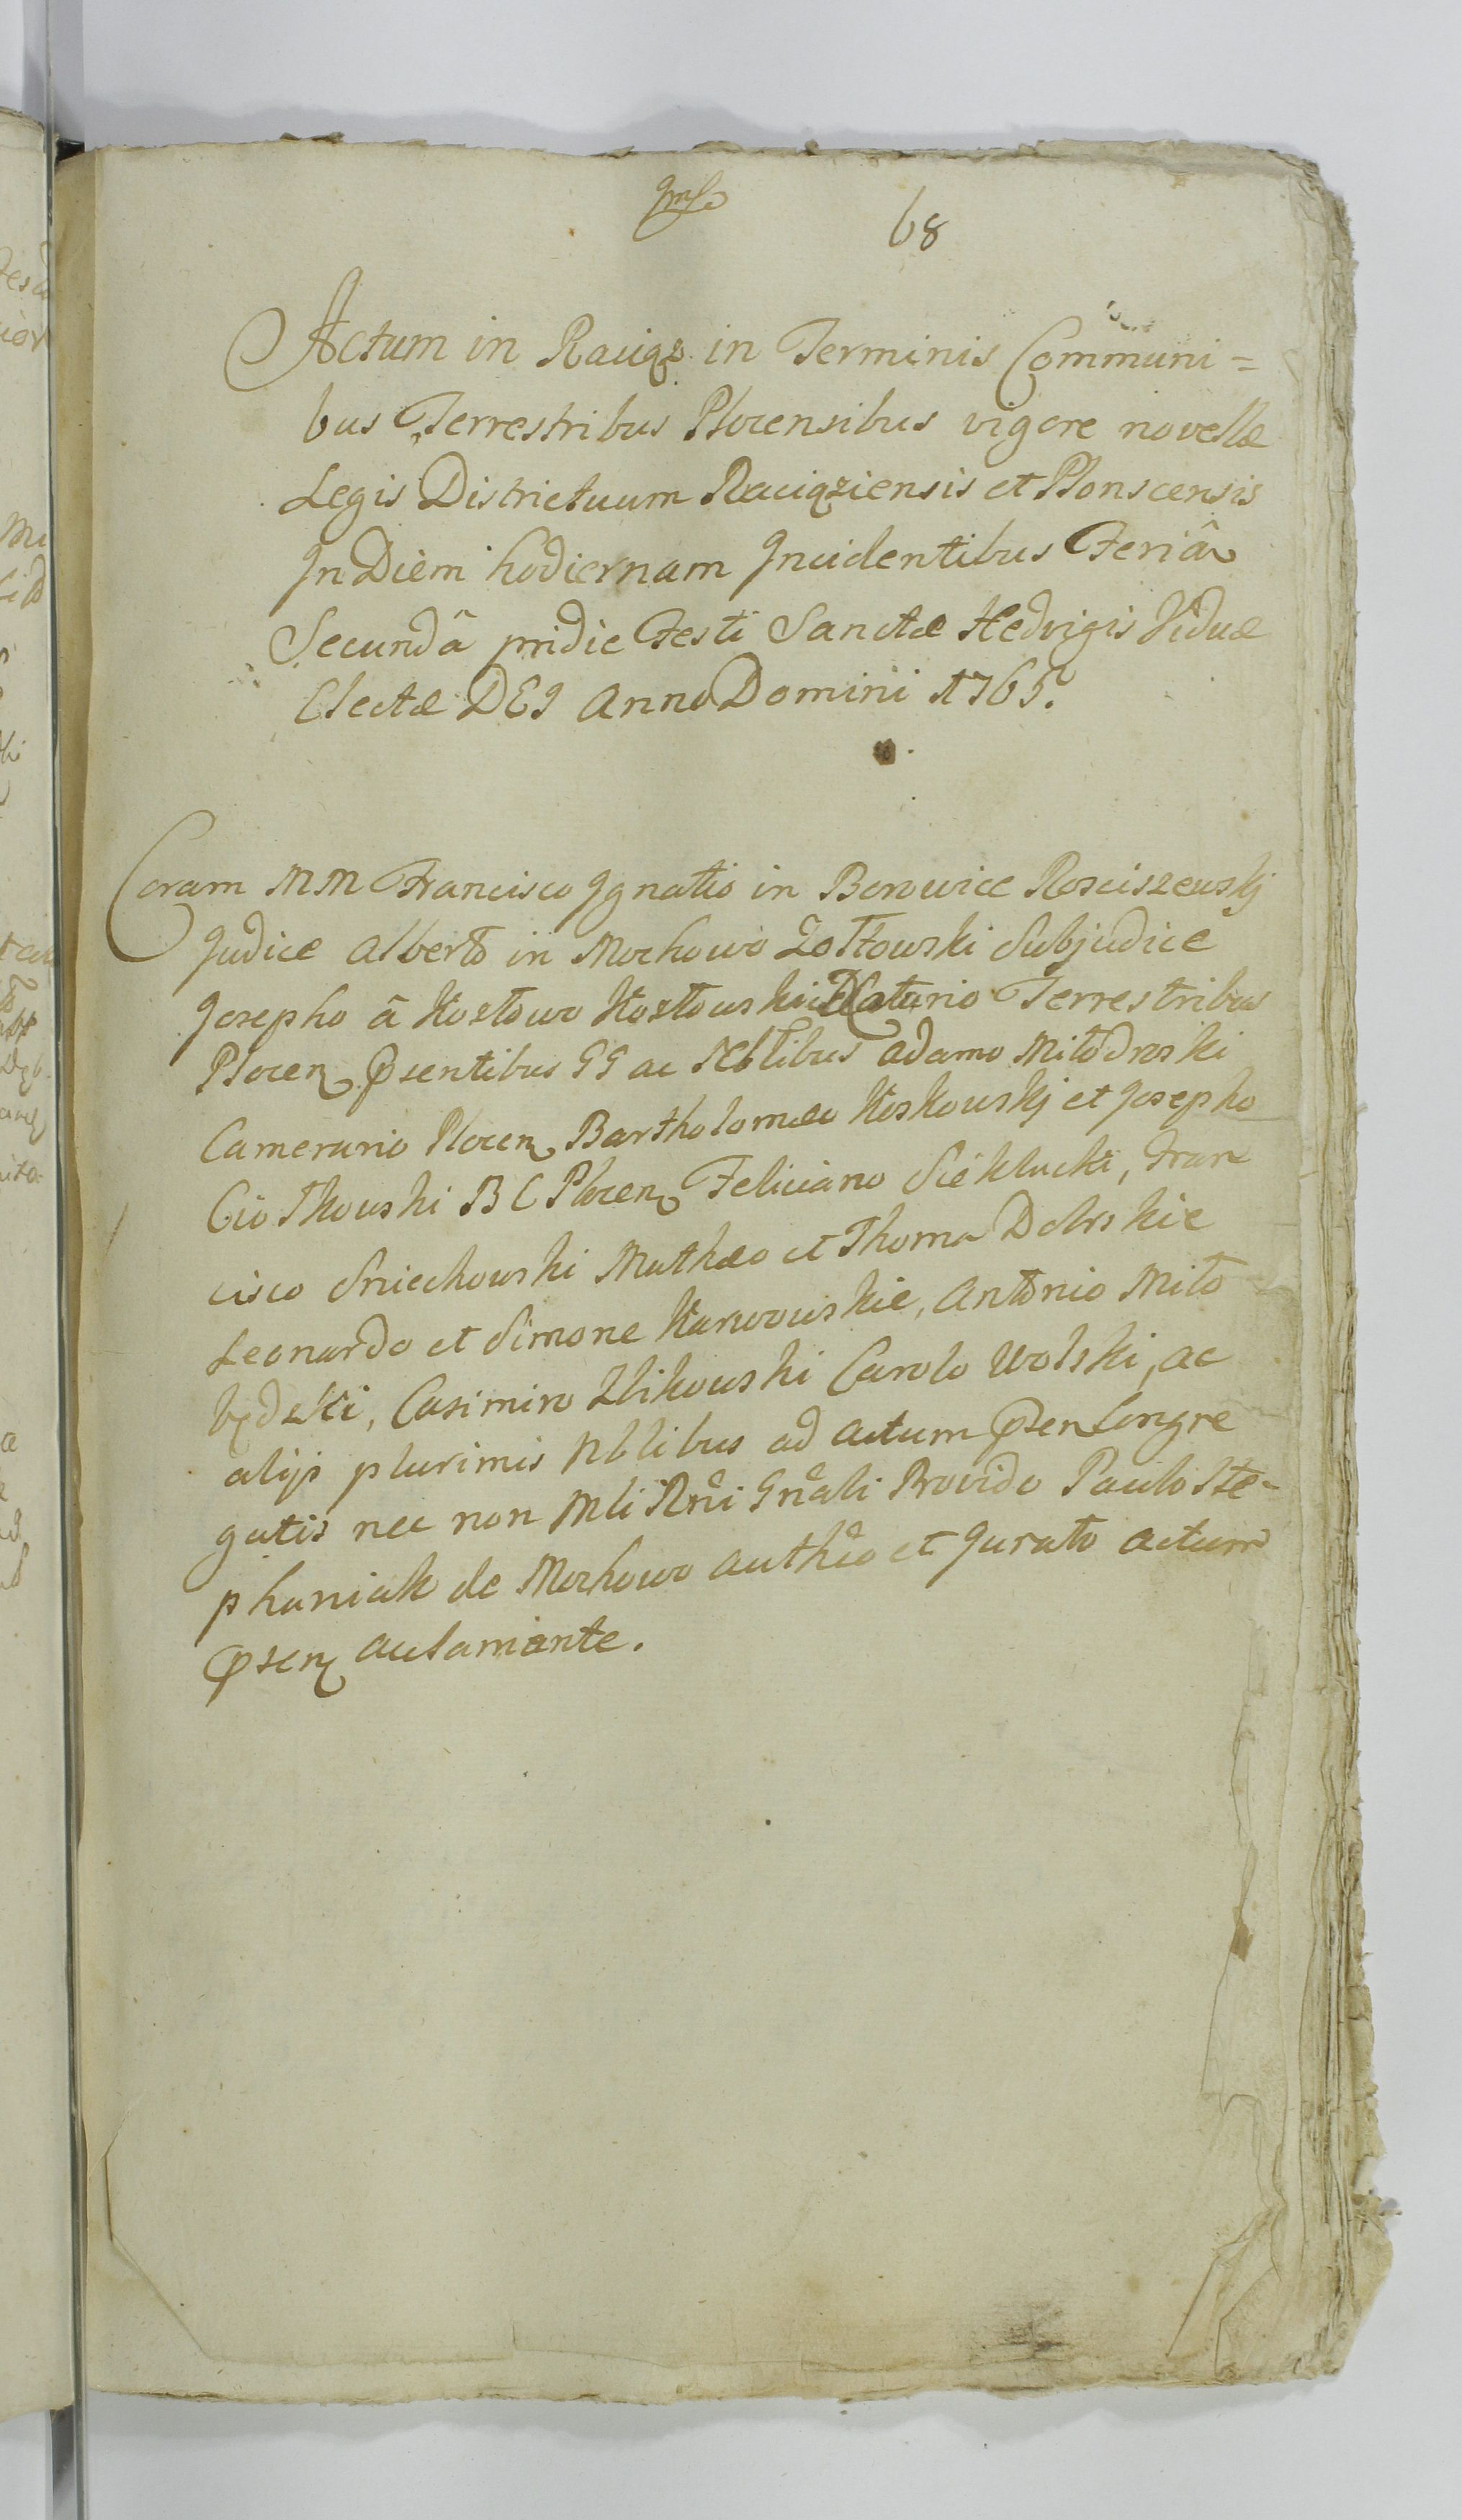 68
Actum in Raciąz in Terminis Communi=
bus Terrestribus Plocensibus vigore novellæ
Legis Districtuum Raciąziensis et Plonscensis
In Diem hodiernam Incidentibus Feriâ
Secundâ pridie Festi Sanctæ Hedvigis Viduæ
Electæ DEI Anno Domini 1765.
Coram MM Francisco Ignatio in Borowice Rosciszewskj
Judice Alberto in Mochowo Zołtowski Subjudice
Josepho â Kostowo Kostowski Notario Terrestribus
Plocen psentibus GG ac Nblibus Adamo Miłodroski
Camerario Plocen Bartholomæo Koskowskj et Josepho
Ciołkowski B C Plocen Feliciano Sieklucki, Fran
cisco Sniechowski Mathæo et Thoma Dobrskie
Leonardo et Simone Karwowskie, Antonio Miło
będzki, Casimiro Zbikowski Carolo Wolski, ac
alijs plurimis Nblibus ad actum psen Congre
gatis nec non Mli Rni Gnali Provido Paulo Ste-
phaniak de Mochowo authco et Jurato actum
psen aclamante.